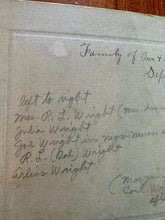 Family of Mr &
left to right
Mrs. R. L. Wright (Mrs.
Julia Wright
Joe Wright in negro nurse
R. L. (Bob) Wright
Arliss Wright